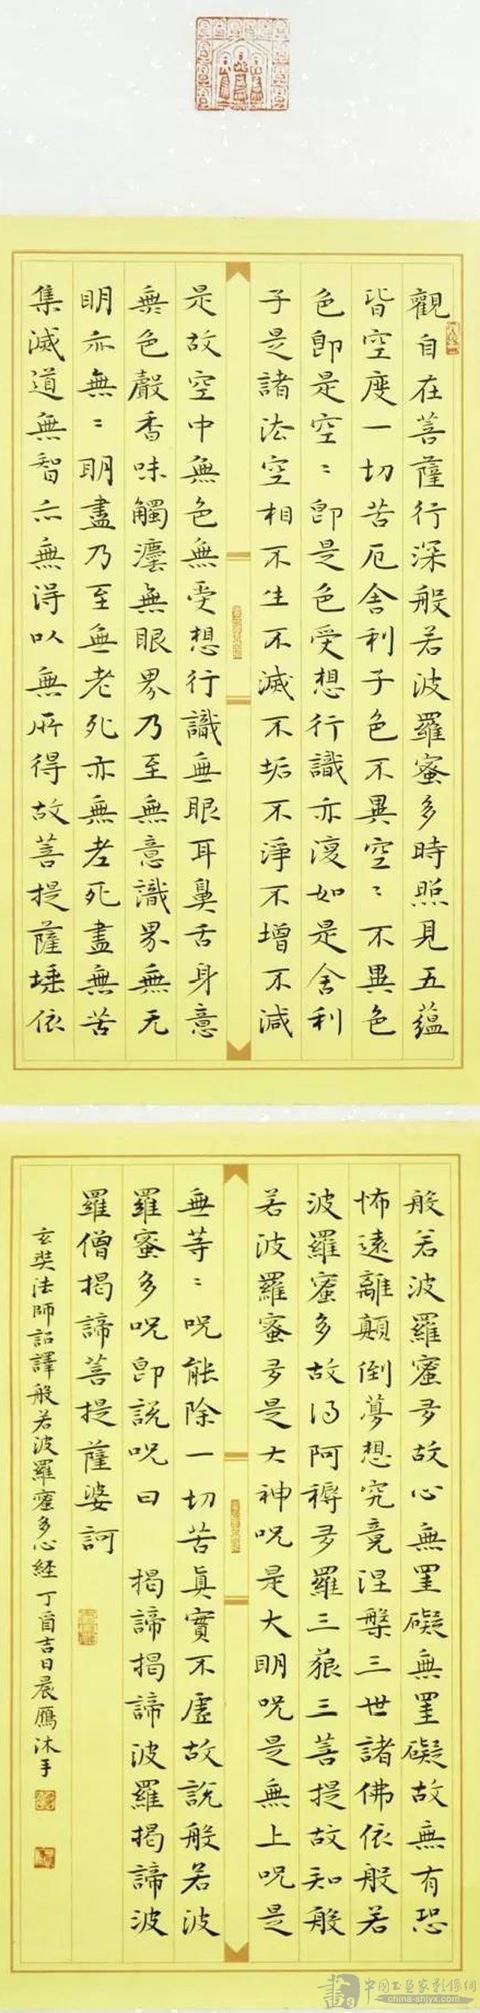 觀自在菩薩行深般若波羅蜜多時照見五蘊
皆空度一切苦厄舍利子色不異空〻不異色
色即是空〻即是色受想行識亦復如是舍利
子是諸法空相不生不滅不垢不淨不增不減
是故空中無色無受想行識無眼耳鼻舌身意
無色聲香味觸灋無眼界乃至無意識界無无
明亦無〻明盡乃至無老死亦無老死盡無苦
集滅道無智亦無得以無所得故菩提薩埵依
般若波羅蜜多故心無罣礙無罣礙故無有恐
怖遠離顛倒夢想究竟涅槃三世諸佛依般若
波羅蜜多故得阿耨多羅三藐三菩提故知般
若波羅蜜多是大神呪是大明呪是無上呪是
無等〻呪能除一切苦真實不虛故說般若波
羅蜜多呪即說呪曰 揭諦揭諦波羅揭諦波
羅僧揭諦菩提薩婆訶
玄奘法師詔譯般若波羅蜜多心経 丁酉吉日晨雁沐手
中国书画家影像网
china-shjyx.com